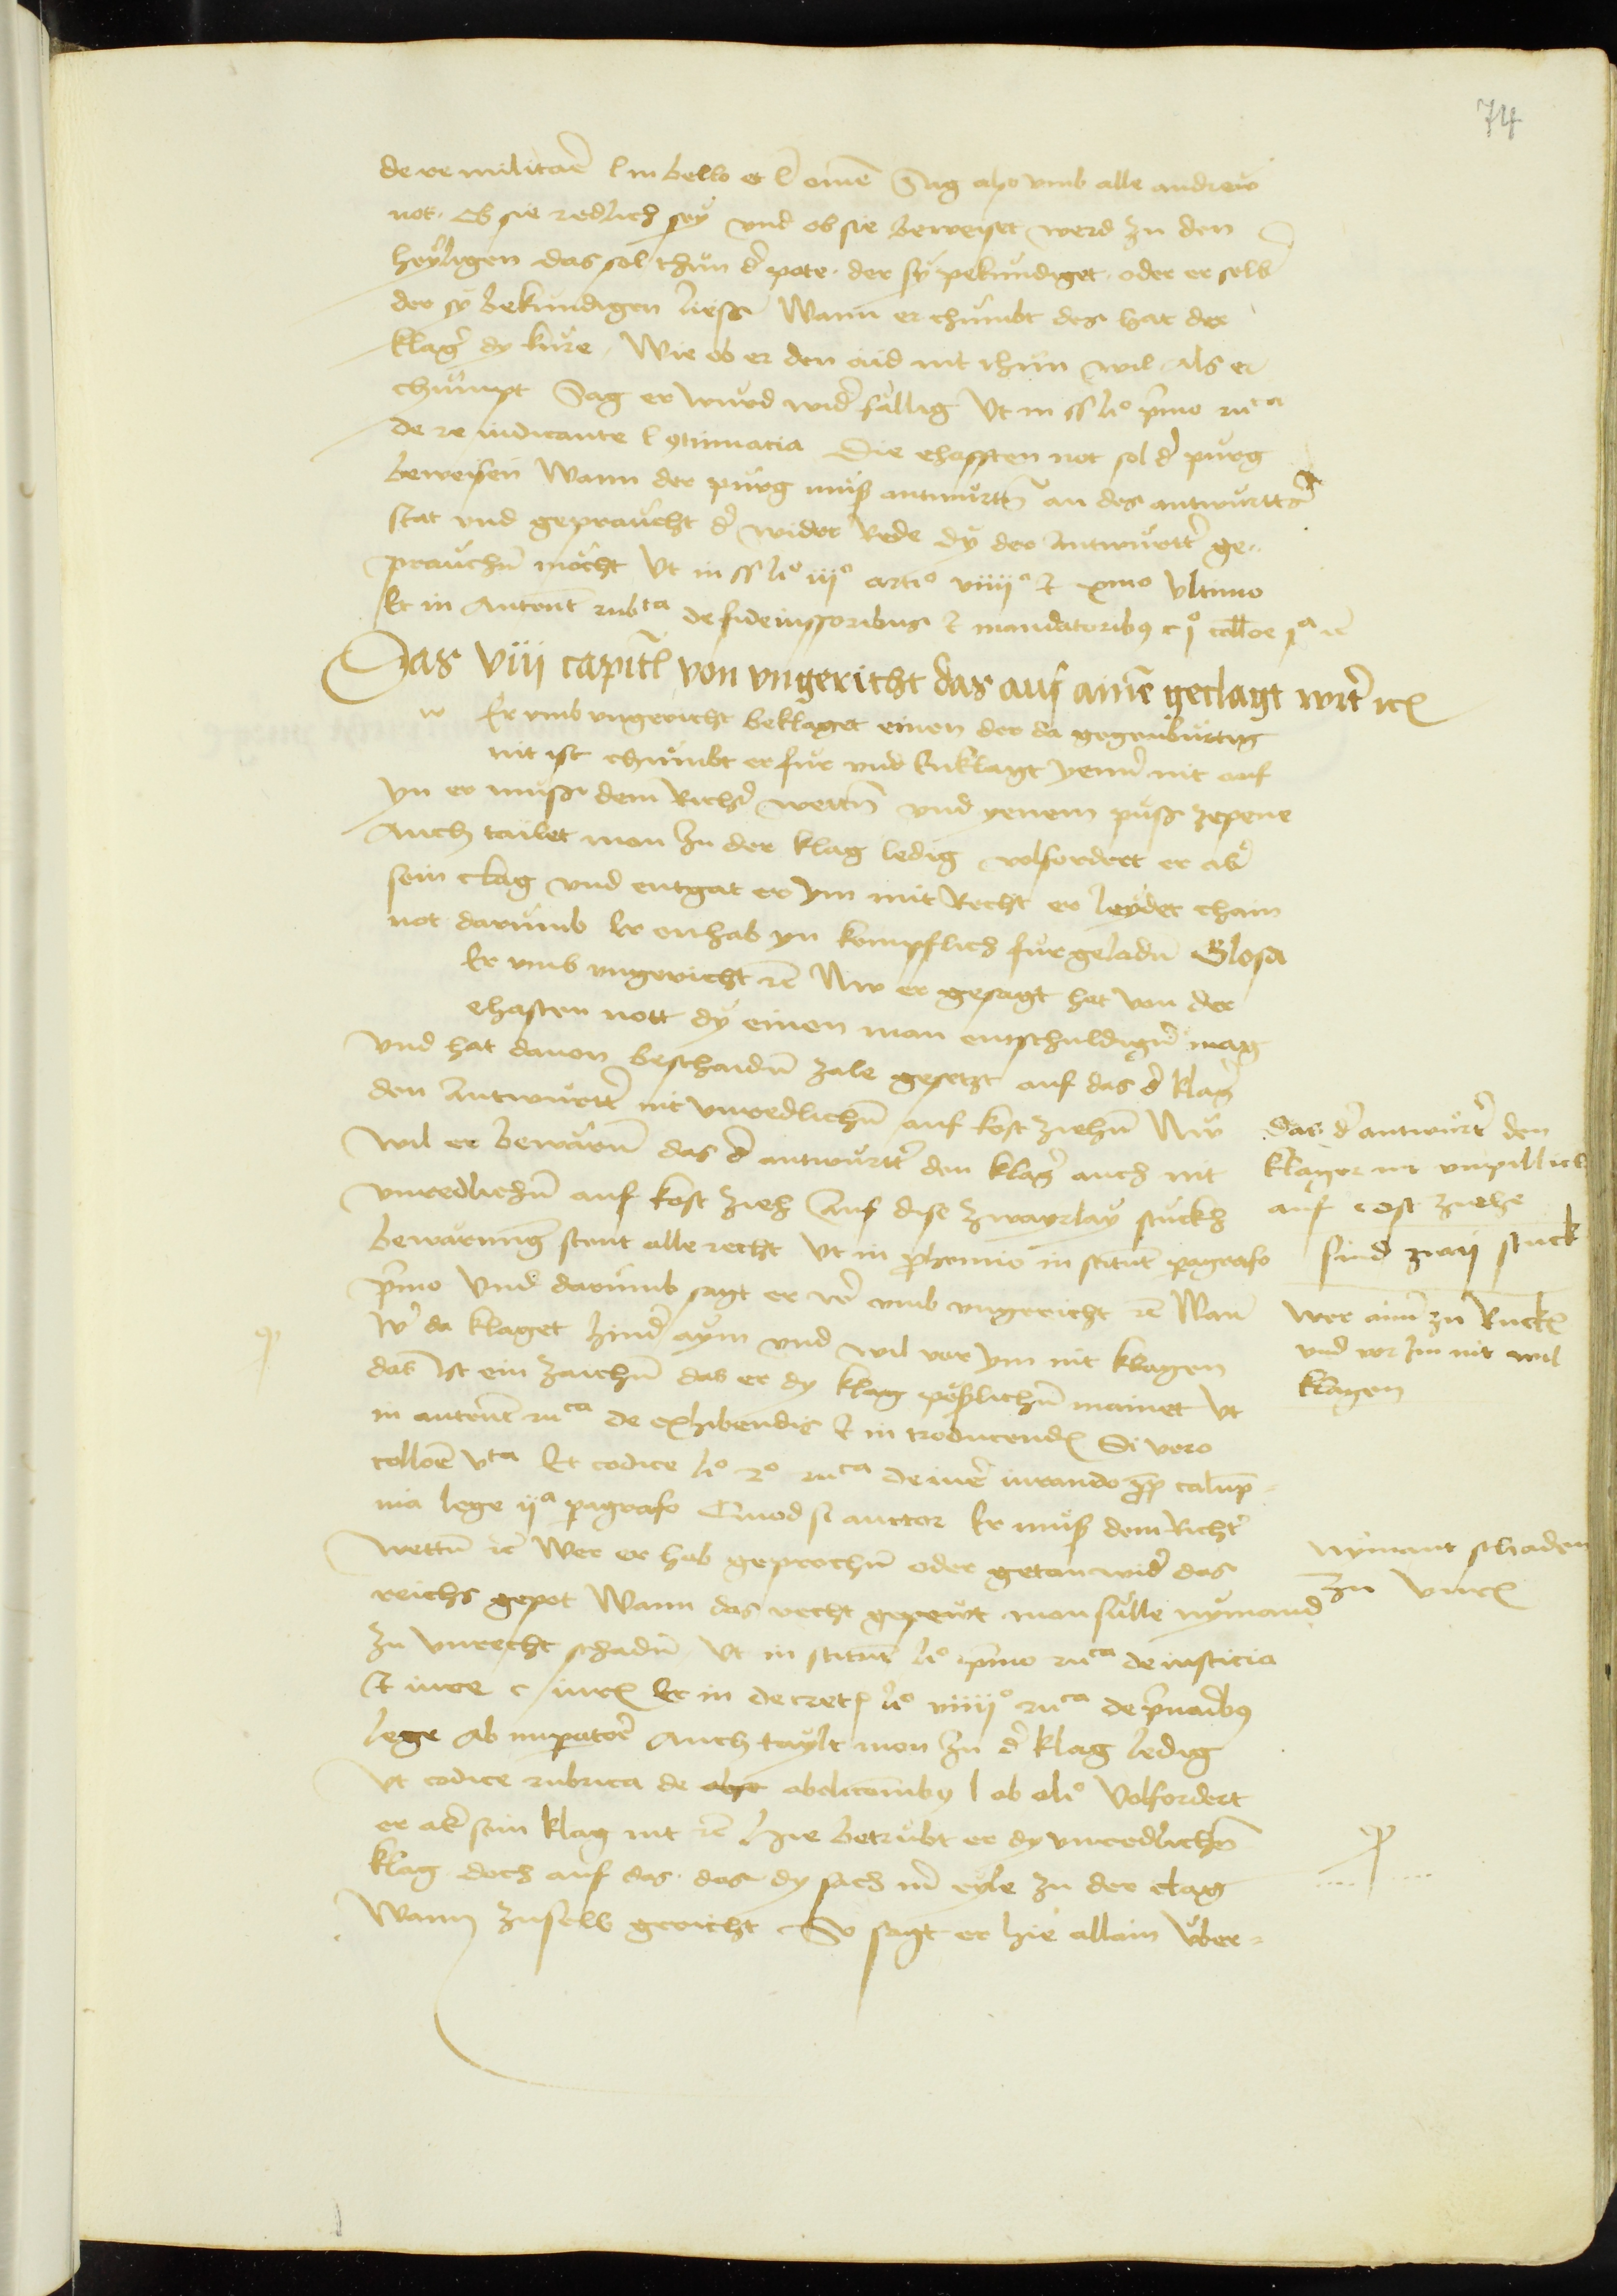 74
de re militar̄ l in bello et l omē Sag also vmb alle andrew
not. Ob sie redlich sey vnd ob sie beweiset werd zu den
heyligen das sol thun d̕ pote. der sy pekundiget. oder er selb̕
der sy bekundigen liess Wann er chumbt des hat der
klag̕ dy kure. Wie ob er den aid nit thun wil als er
chumpt Sag er wurd wid̕ fallig Vt in ff li͛o p̕mo ruca
de re iudicante l 9tumacia Die ehafften not sol d̕ purg
beweisen Wann der purg muss antwurtt̄n an des antwurtt̕s
stat vnd gepraucht d̕ wider Rede dy der Antwurtt̕ ge-
prauchn̄ mocht Vt in ff lio iiio artio viiiio et xmo vltimo
Et in Autent rubca de fideiussoribus et mandatorib9 c io colloe ia rc̄
Das viii capitl̄ von vngericht das auf ainē geclagt wirt̕ rc̄
w Er vmb vngericht beklaget einen der da gegenburtig
nit ist chumbt er fur vnd Enklagt yenn̄ nit auf
yn er muss dem Richt̕ wettn̄ vnd yenem puss zepene
Auch tailet man In der klag ledig volfordert er ab̕
sein clag vnd entgat er ym mit Recht er leydet chain
not darumb Er enhab yn kempflich fur geladn̄ Glosa
Er vmb vngericht rc̄ Nw er gesagt hat von der
ehaften nott dy einen man entschuldign̄ mag
vnd hat dauon beschaidn̄ zale gesetzt auf das d̕ klag̕
den Antwurtt̕ nit vnredlichn̄ auf kost ziehn̄ Nw
wil er bewarn̄ das d̕ antwurtt̕ den klag̕ auch nit
vnredlichn̄ auf kost zieh Auf dise zwayrlay stuckh
bewarung stent alle recht Vt in p̄hemio in stitut̄ pagrafo
p̕mo Vnd darumb sagt er w̕ vmb vngericht rc̄ Wan̄
W̕ da klaget hind̕ aym vnd wil vor ym nit klagen
das Ist ein zaichn̄ das er dy klag poslichn̄ mainet Vt
in autent̄ ruca de exhibendis et in troducendis Si vero
colloē vta Et codice lio 2o ruca de iur̄e iurando p̄p̄ calup̄-
nia lege iia pagrafo Quod si auctor Er muss dem Richt̕
wettn̄ rc̄ Wer er hab geprochn̄ oder getan wid̕ das
reichs gepot Wann das recht gepewt man sulle nymand
zu vnrecht schadn̄ Vt in stitut̄ lio p̕mo ruca de iusticia
et iure c iuris Et in decretis lio viiiio ruca de p̕uatib9
lege Ab impator̄e Auch taylt man In d̕ klag ledig
Vt codice rubrica de abolicōnib9 l ab alio Volfordert
er ab̕ sein klag nit rc̄ Hie betrubt er dy vnredlichn̄
klag doch auf das. das dy sach nit eyle zu der clag
Wann zuselb gericht So sagt er hie allain vber-
das d̕ antwurt̕ den
klager nit vnpillich
auf cost ziehe
sind zwaij stuck
Wer ainē zu Ruckn̄
vnd vor Im nit wil
klagen
Nymant schaden
zu vnrc̄